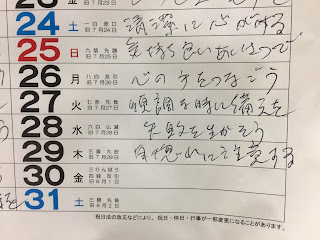 24 土 一白 赤口 旧7月24日 清潔に心がける
25 日 九紫 先勝 旧7月25日 気持ち良いあいさつで
26 月 八白 友引 旧7月26日 心の手をつなごう
27 火 七赤 先負 旧7月27日 順調な時に備えを
28 水 六白 仏滅 旧7月28日 失敗を生かそう
29 木 五黄 大安 旧7月29日 自惚れに注意する
30 金 三りんぼう 四緑 友引 旧8月1日
31 土 三碧 先負 旧8月2日
祝日法の改正などにより、祝日・休日・行事が一部変更になることがあります。